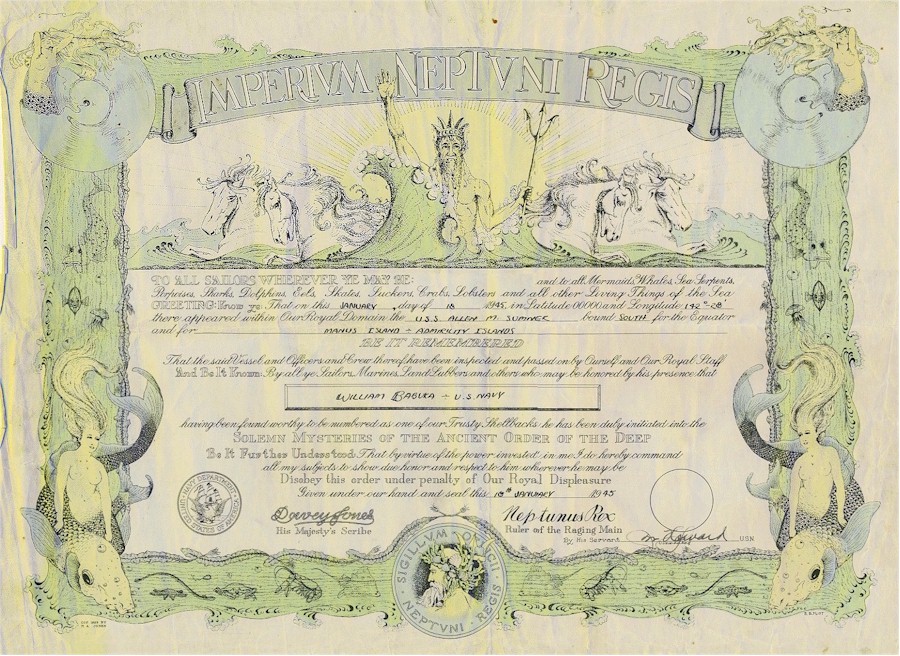 IMPERIVM NEPTVNI REGIS
TO ALL SAILORS WHEREVER YE MAY BE: and to all Mermaids, Whales, Sea Serpents,
Porpoises, Sharks, Dolphins, Eels, Skates, Suckers, Crabs, Lobsters and all other Living Things of the Sea
GREETING: Know ye: That on this JANUARY day of 18 1945 in Latitude 00000 and Longitude 142°-08'
there appeared within Our Royal Domain the U.S.S. ALLEN M. SUMNER bound SOUTH for the Equator
and for MANUS ISLAND - ADMIRILITY ISLANDS
BE IT REMEMBERED
That the said Vessel and Officers and Crew thereof have been inspected and passed on by Ourself and Our Royal Staff
And Be It Known: By all ye Sailors, Marines, Land Lubbers and others who may be honored by his presence that
WILLIAM BABULA - U.S. NAVY
having been found worthy to be numbered as one of our Trusty Shellbacks he has been duly initiated into the
SOLEMN MYSTERIES OF THE ANCIENT ORDER OF THE DEEP
Be It Further Understood: That by virtue of the power invested in me I do hereby command
all my subjects to show due honor and respect to him wherever he may be
Disobey this order under penalty of Our Royal Displeasure
Given under our hand and seal this 18th JANUARY 1945
NAVY DEPARTMENT
UNITED STATES OF AMERICA
Davey Jones
His Majesty's Scribe
Neptunus Rex
Ruler of the Raging Main
By His Servant USN
SIGILLVM
NEPTVNI REGIS